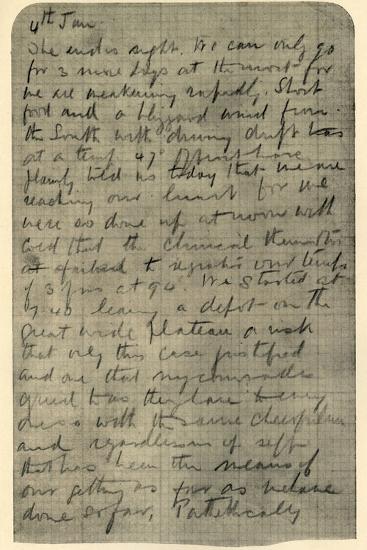 4th Jan.
The end is in sight. We can only go
for 3 more days at the most for
we are weakening rapidly. Short
food and a blizzard wind from
the South with driving drift
at a temp 47° of frost have
plainly told us today that we are
reaching our limit for we
were so done up at noon with
cold that the clinical thermometer
failed to register our temps
of 3 of us at 94°. We started at
7.40 leaving a depot on the
great wide plateau a risk
that only this case justified
and one that my comrades
agreed to as they have to every
one so with the same cheerfulness
and regardlessness of self
that has been the means of
our getting as far as we have
done so far. Pathetically